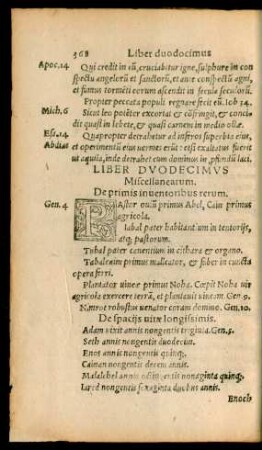 368 Liber duodecimus
Apoc.14 Qui credit in eū, cruciabitur igne, sulphure in con
spectu angelorū et sanctorū, et ante conspectū agni,
et fumus tormēti eorum ascendit in secula seculorū.
Propter peccata populi regnare fecit eū. Iob 34.
Mich.6 Sicut leo potēter excoriat & cōfringit, & conci
dit quasi in lebete, & quasi carnem in medio ollæ.
Esa.14 Quapropter detrahetur ad inferos superbia eius,
Abdias et operimentū eius uermes erūt: etsi exaltatus fuerit
ut aquila, inde detrahet eum dominus in pfundū laci.
LIBER DVODECIMVS
Miscellanearum.
De primis inuentoribus rerum.
Gen.4 PAstor ouiū primus Abel, Cain primus
agricola.
Iabal pater habitantium in tentorijs,
atq; pastorum.
Tubal pater canentium in cithara & organo.
Tubalcaim primus malleator, & faber in cuncta
opera ferri.
Plantator uineæ primus Nohe. Cœpit Nohe uir
agricola exercere terrā, et plantauit uineam. Gen.9.
Nimrot robustus uenator coram domino. Gen.10.
De spacijs uitæ longissimis.
Adam vixit annis nongentis triginta. Gen.5.
Seth annis nongentis duodecim.
Enos annis nongentis quinq;
Cainan nongentis decem annis.
Malalehel annis octingentis nonaginta quinq;
Iared nongentis sexaginta duobus annis.
Enoch